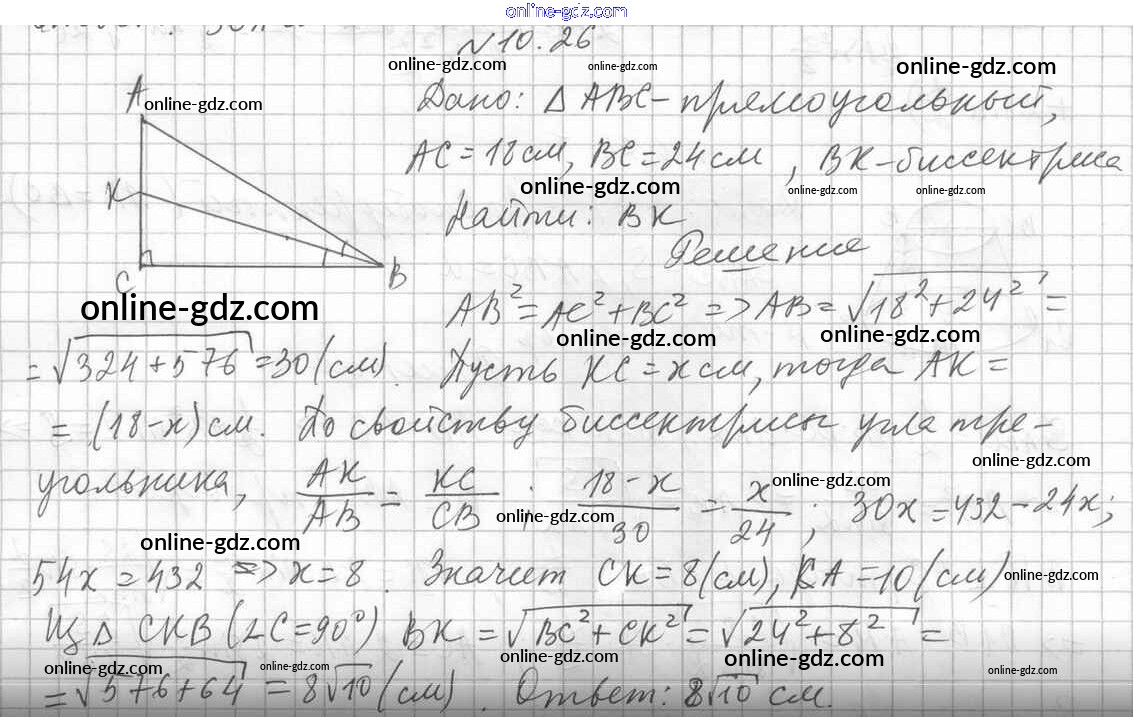 online-gdz.com
№ 10.26
online-gdz.com online-gdz.com online-gdz.com
A online-gdz.com
Дано: △ ABC - прямоугольный,
AC = 18 см, BC = 24 см, BK - биссектриса
online-gdz.com online-gdz.com online-gdz.com
K
Найти: BK
Решение
C B
online-gdz.com
AB² = AC² + BC² => AB = √(18² + 24²) =
online-gdz.com online-gdz.com
= √(324 + 576) = 30 (см). Пусть KC = x см, тогда AK =
= (18 - x) см. По свойству биссектрисы угла тре-
online-gdz.com
угольника, AK/AB = KC/CB; (18 - x)/30 = x/24; 30x = 432 - 24x;
online-gdz.com online-gdz.com
online-gdz.com
54x = 432 => x = 8. Значит CK = 8 (см), KA = 10 (см)
online-gdz.com
Из △ CKB (∠C = 90°) BK = √(BC² + CK²) = √(24² + 8²) =
online-gdz.com online-gdz.com online-gdz.com online-gdz.com online-gdz.com
= √(576 + 64) = 8√10 (см). Ответ: 8√10 см.